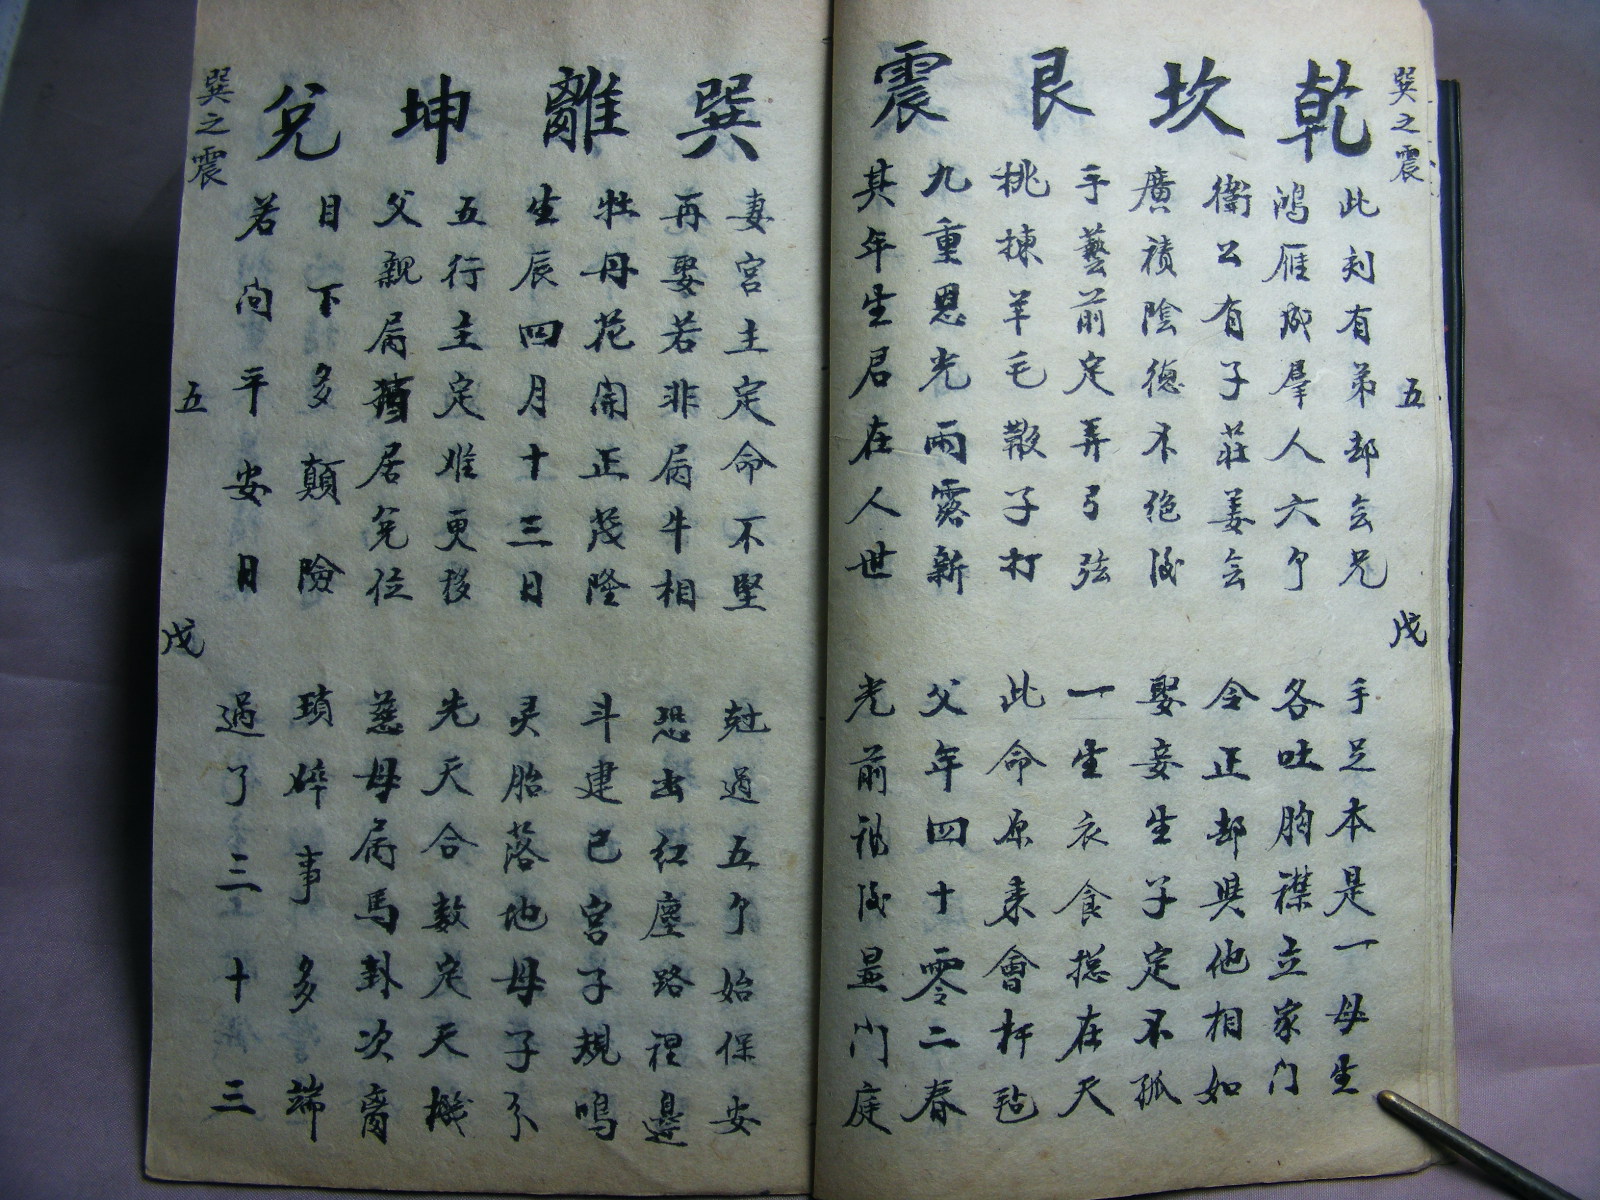 巽之震 五 戊
乾 坎 艮 震
此刻有弟却会兄 手足本是一母生
鴻雁成羣人六个 各吐胸襟立家门
衛公有子莊姜会 令正却與他相如
廣積陰德不絕後 娶妾生子定不孤
手藝前定弄弓弦 一生衣食揔在天
挑揀羊毛散子打 此命原来會杆毡
九重恩光雨露新 父年四十零二春
其年生君在人世 光前裕後显门庭
巽 離 坤 兌
妻宮主定命不堅 尅過五个始保安
再娶若非屬牛相 恐出红塵路裡邊
牡丹花開正茂隆 斗建己宮子規鳴
生辰四月十三日 灵胎落地母子分
五行主定难更移 先天合數定天機
父親屬猪居兌位 慈母屬馬卦次离
目下多顛險 瑣碎事多端
若问平安日 過了三十三
巽之震 五 戊